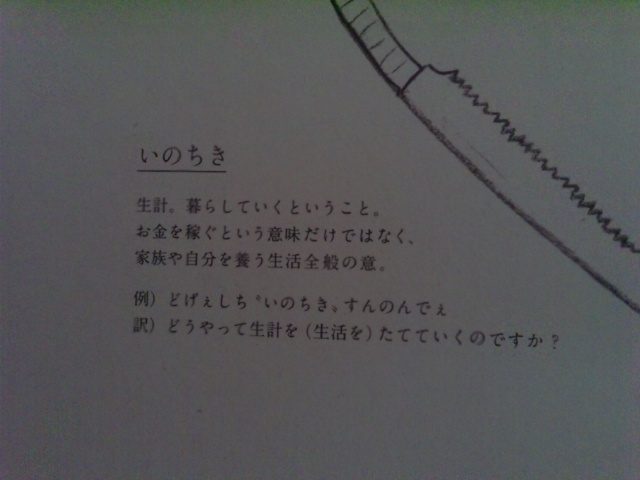 いのちき
生計。暮らしていくということ。
お金を稼ぐという意味だけではなく、
家族や自分を養う生活全般の意。
例）どげぇしち〝いのちき〟すんのんでぇ
訳）どうやって生計を（生活を）たてていくのですか？